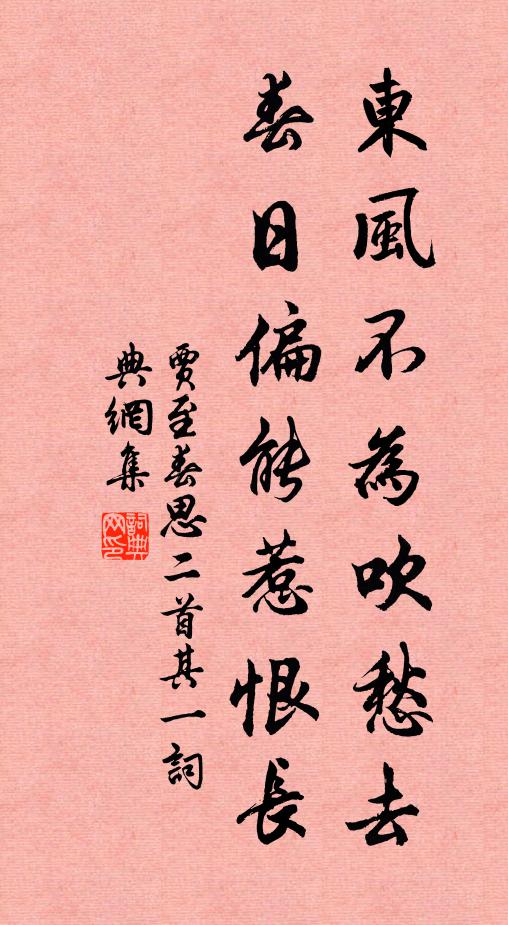 東風不為吹愁去
春日偏能惹恨長
賈至春思二首其一詞
典網集
詞典
网印